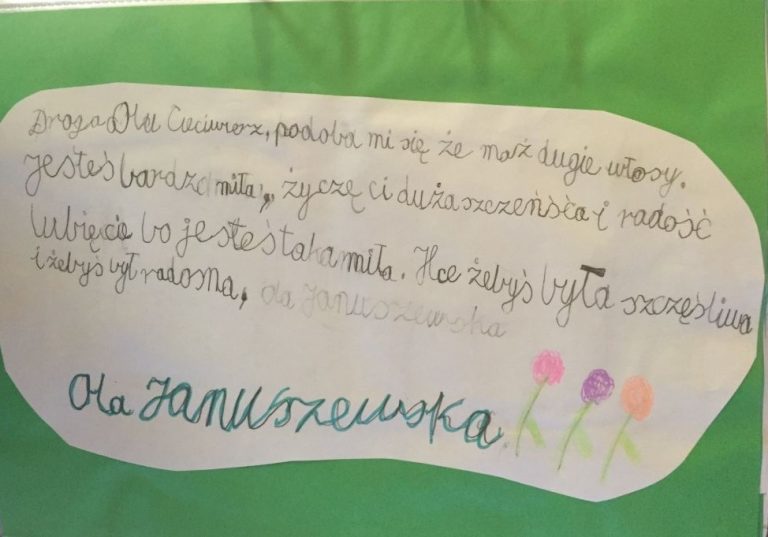 Droga Olu Cieciwierz, podoba mi się że masz dugie włosy.
jesteś bardzo miła, życzę ci duża szczeńśća i radość
lubię cie bo jesteś taka miła. Hce żebyś była szczęśliwa
i żebyś był radosna, ola Januszewska
Ola Januszewska